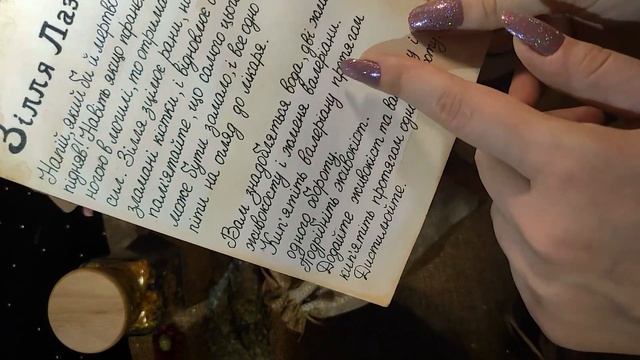 Зілля Лаз
Напій, який би й мертвого
підняв! Навіть якщо
ногою в могилі, то отрима
сил. Зілля зцілює рани,
зламані кістки, і відновлює
пам'ятайте, що самого
може бути замало, і все одно
піти на огляд до лікаря.
Вам знадобляться вода, дві
живокосту і жменя валеріани.
Кип'ятіть валеріану протягом
одного оберту
Подрібніть живокіст.
Додайте живокіст та
кип'ятіть протягом
Дистилюйте.